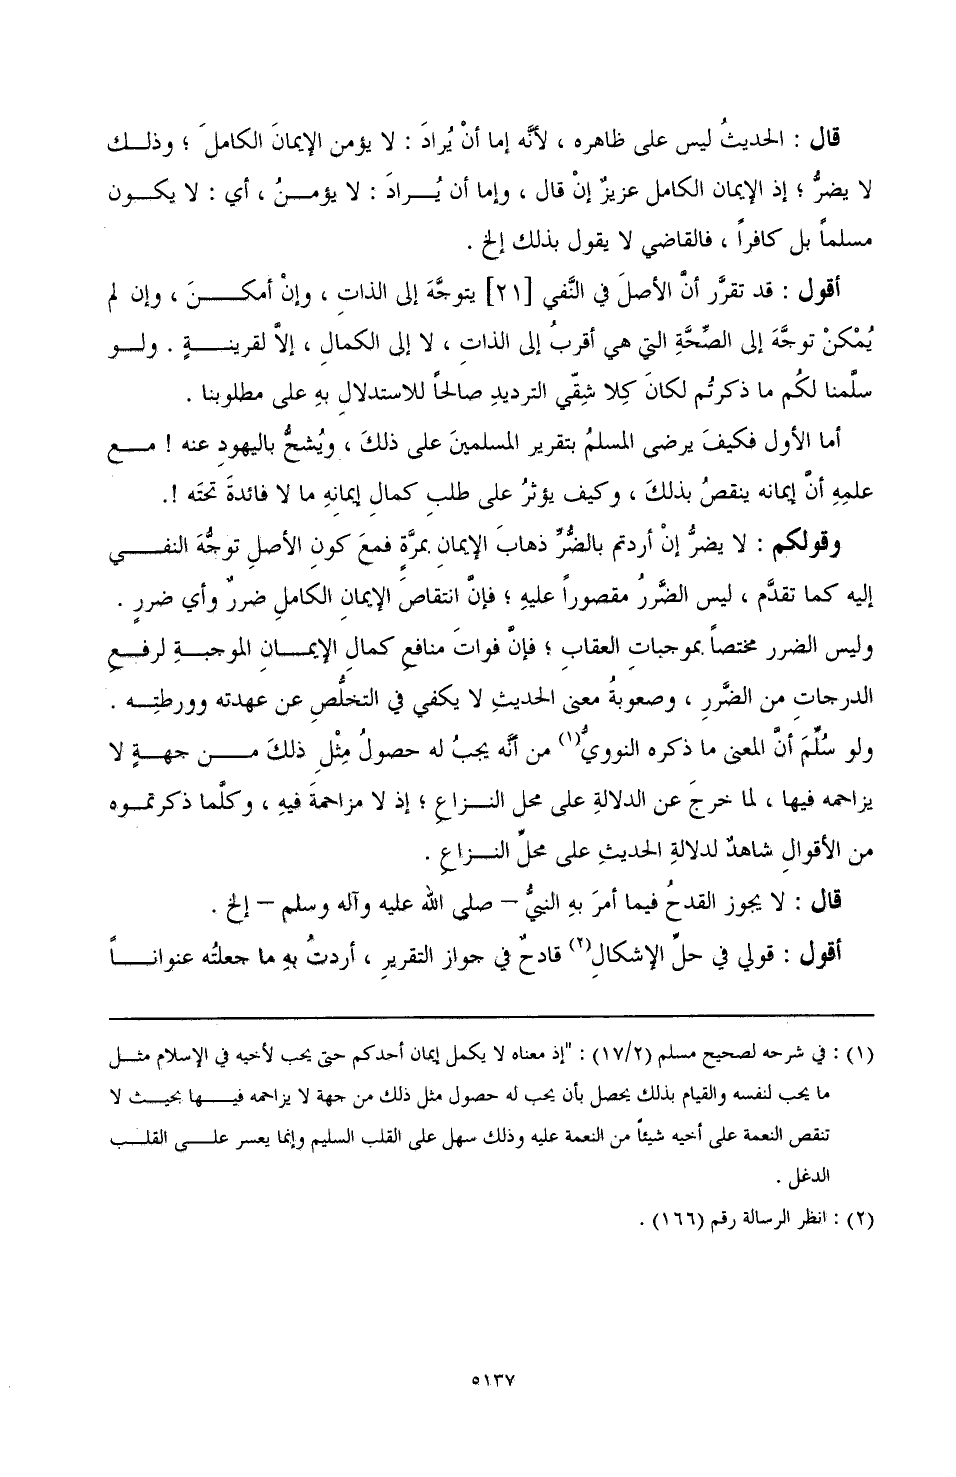 قال : الحديثُ ليس على ظاهره ، لأنَّه إما أنْ يُرادَ : لا يؤمن الإيمانَ الكاملَ ؛ وذلك
لا يضرُّ ؛ إذ الإيمان الكامل عزيزٌ إنْ قال ، وإما أن يُرادَ : لا يؤمنُ ، أي : لا يكون
مسلماً بل كافراً ، فالقاضي لا يقول بذلك إلخ .
أقول : قد تقرَّر أنَّ الأصلَ في النَّفي [٢١] يتوجَّهَ إلى الذاتِ ، وإنْ أمكنَ ، وإن لم
يُمْكنْ توجَّهَ إلى الصِّحَّةِ التي هي أقربُ إلى الذاتِ ، لا إلى الكمالِ ، إلاَّ لقرينةٍ . ولو
سلَّمنا لكُم ما ذكرتُم لكانَ كِلا شِقّي الترديدِ صالحاً للاستدلال بهِ على مطلوبنا .
أما الأول فكيفَ يرضى المسلمُ بتقرير المسلمينَ على ذلكَ ، ويُشحُّ باليهودِ عنه ! مع
علمِهِ أنَّ إيمانه ينقصُ بذلكَ ، وكيف يؤثرُ على طلبِ كمالِ إيمانِهِ ما لا فائدةَ تحتَه !.
وقولكم : لا يضرُّ إنْ أردتم بالضُّرِّ ذهابَ الإيمانِ بمرَّةٍ فمعَ كونِ الأصلِ توجُّهَ النفي
إليه كما تقدَّم ، ليس الضَّررُ مقصوراً عليهِ ؛ فإنَّ انتقاصَ الإيمانِ الكاملِ ضررٌ وأي ضررٍ .
وليس الضرر مختصاً بموجباتِ العقابِ ؛ فإنَّ فواتَ منافعِ كمالِ الإيمانِ الموجبةِ لرفعِ
الدرجاتِ من الضَّررِ ، وصعوبةُ معنى الحديثِ لا يكفي في التخلُّصِ عن عهدته وورطتِه .
ولو سُلِّمَ أنَّ المعنى ما ذكره النوويُّ(١) من أنَّه يجبُ له حصولُ مِثْلِ ذلكَ من جهةٍ لا
يزاحمه فيها ، لما خرجَ عن الدلالةِ على محل النزاعِ ؛ إذ لا مزاحمةَ فيهِ ، وكلَّما ذكرتموه
من الأقوالِ شاهدٌ لدلالةِ الحديثِ على محلِّ النزاعِ .
قال : لا يجوز القدحُ فيما أمرَ بهِ النبيُّ – صلى الله عليه وآله وسلم – إلخ .
أقول : قولي في حلِّ الإشكال(٢) قادحٌ في جواز التقرير ، أردتُ بهِ ما جعلتُه عنواناً
(١) : في شرحه لصحيح مسلم (١٧/٢) : "إذ معناه لا يكمل إيمان أحدكم حتى يحب لأخيه في الإسلام مثل
ما يحب لنفسه والقيام بذلك يحصل بأن يحب له حصول مثل ذلك من جهة لا يزاحمه فيها بحيث لا
تنقص النعمة على أخيه شيئاً من النعمة عليه وذلك سهل على القلب السليم وإنما يعسر على القلب
الدغل .
(٢) : انظر الرسالة رقم (١٦٦) .
٥١٣٧